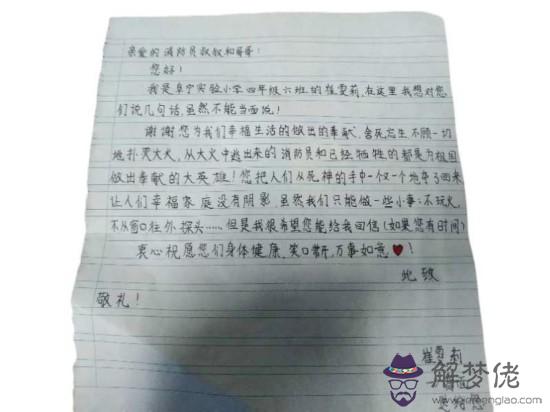 亲爱的消防员叔叔和哥哥:
您好!
我是阜宁实验小学四年级六班的崔雯莉,在这里我想对您
们说几句话,虽然不能当面说!
谢谢您为我们幸福生活的做出的奉献、舍死忘生不顾一切
地扑灭大火,从大火中逃出来的消防员和已经牺牲的都是为祖国
做出奉献的大英雄!您把人们从死神的手中一个又一个地夺了回来
让人们幸福家庭没有阴影,虽然我们只能做一些小事:不玩火,
不从窗口往外探头……但是我很希望您能给我回信(如果您有时间)
衷心祝愿您们身体健康、笑口常开,万事如意♥!
此致
敬礼!
崔雯莉
解梦佬
jiemenglao.com